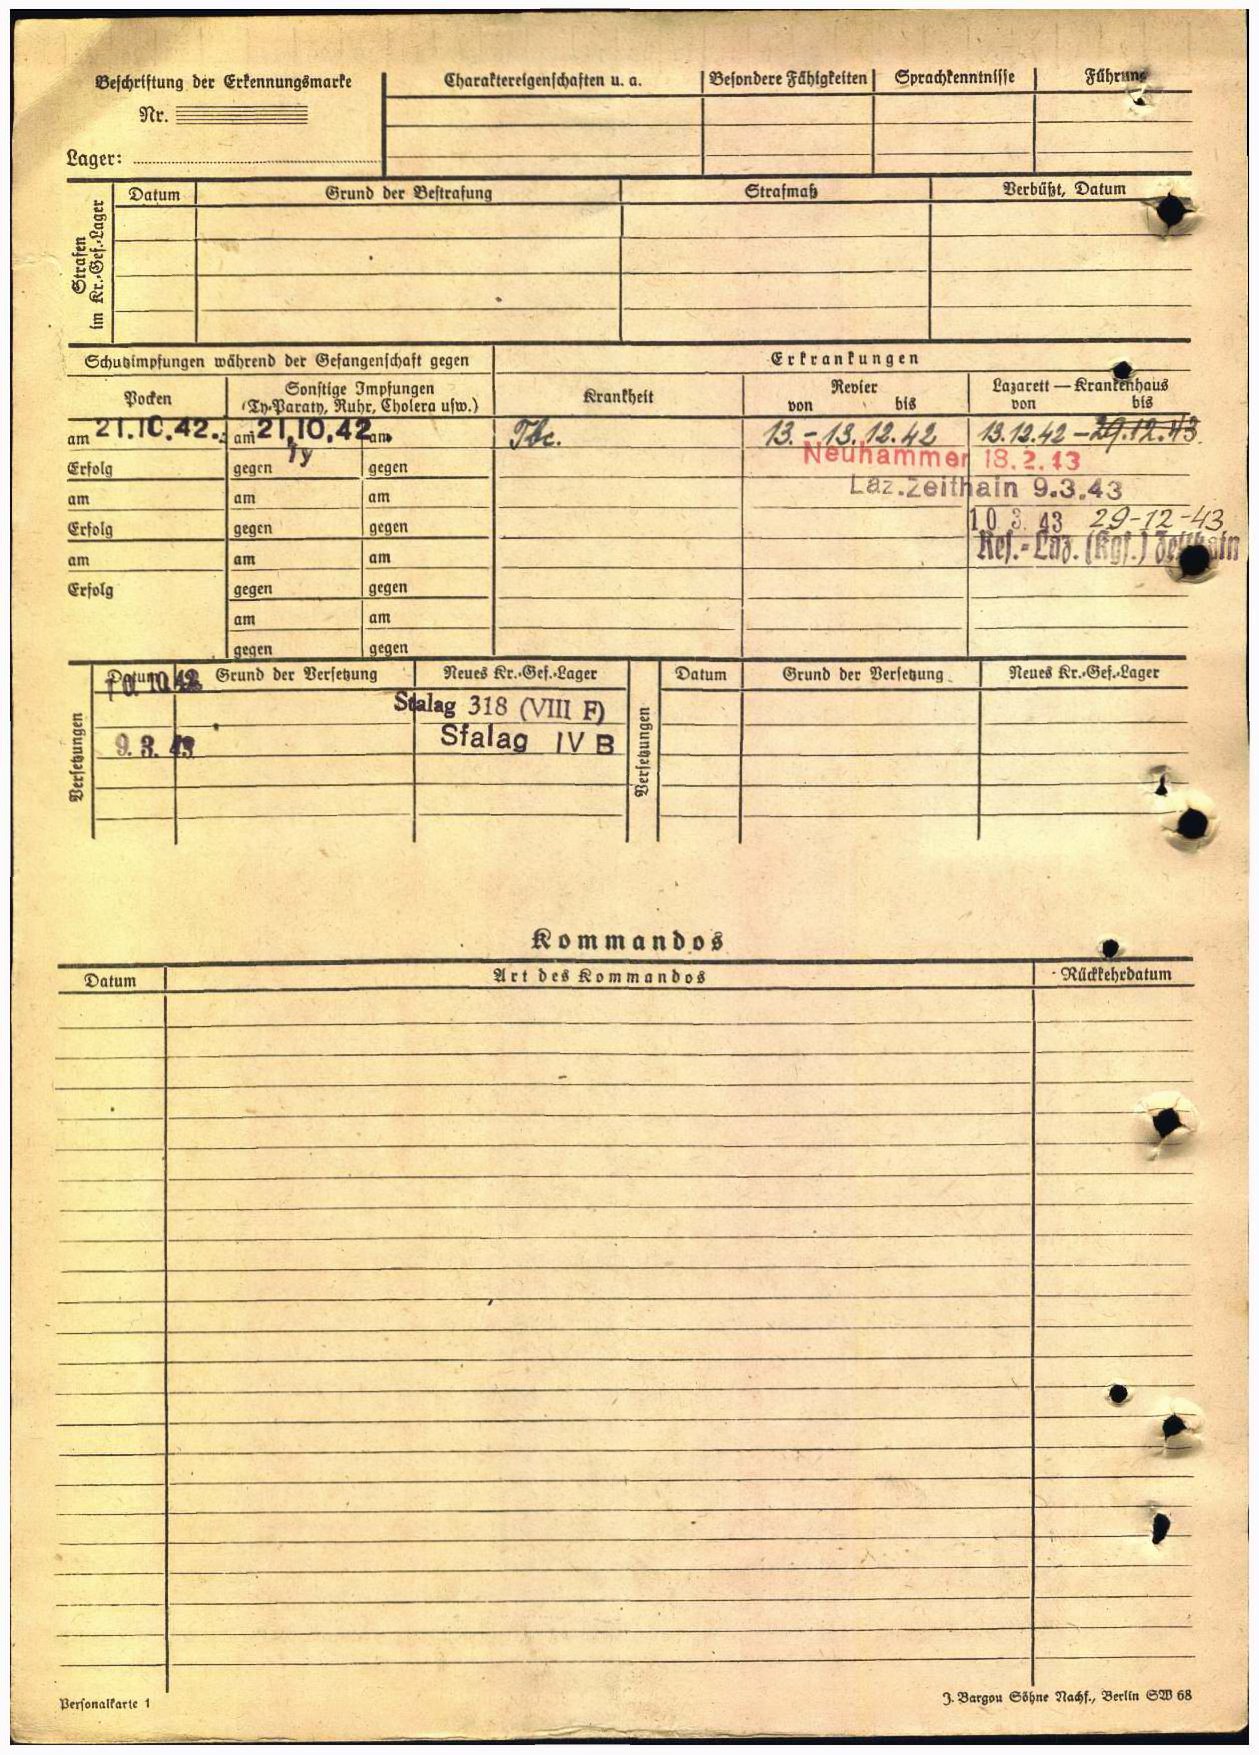 Beschriftung der Erkennungsmarke
Nr.
Lager:
Charaktereigenschaften u. a. Besondere Fähigkeiten Sprachkenntnisse Führung
Strafen
im Kr.-Gef.-Lager
Datum Grund der Bestrafung Strafmaß Verbüßt, Datum
Schutzimpfungen während der Gefangenschaft gegen
Erkrankungen
Pocken
Sonstige Impfungen
(Ty-Paraty, Ruhr, Cholera usw.)
Krankheit
Revier
von bis
Lazarett — Krankenhaus
von bis
am 21.10.42. am 21.10.42 am
Tbc. 13.-13.12.42 13.12.42 - 29.12.43
Ty
Erfolg gegen gegen
Neuhammer 18.2.43
am am am
Laz. Zeithain 9.3.43
Erfolg gegen gegen
10 3. 43 29-12-43
Res.-Laz. (Kgf.) Zeithain
am am am
Erfolg gegen gegen
am am
gegen gegen
Versetzungen
Datum Grund der Versetzung Neues Kr.-Gef.-Lager
10. 10. 42 Stalag 318 (VIII F)
9. 3. 43 Stalag IV B
Versetzungen
Datum Grund der Versetzung Neues Kr.-Gef.-Lager
Kommandos
Datum Art des Kommandos Rückkehrdatum
Personalkarte 1
J. Bargou Söhne Nachf., Berlin SW 68